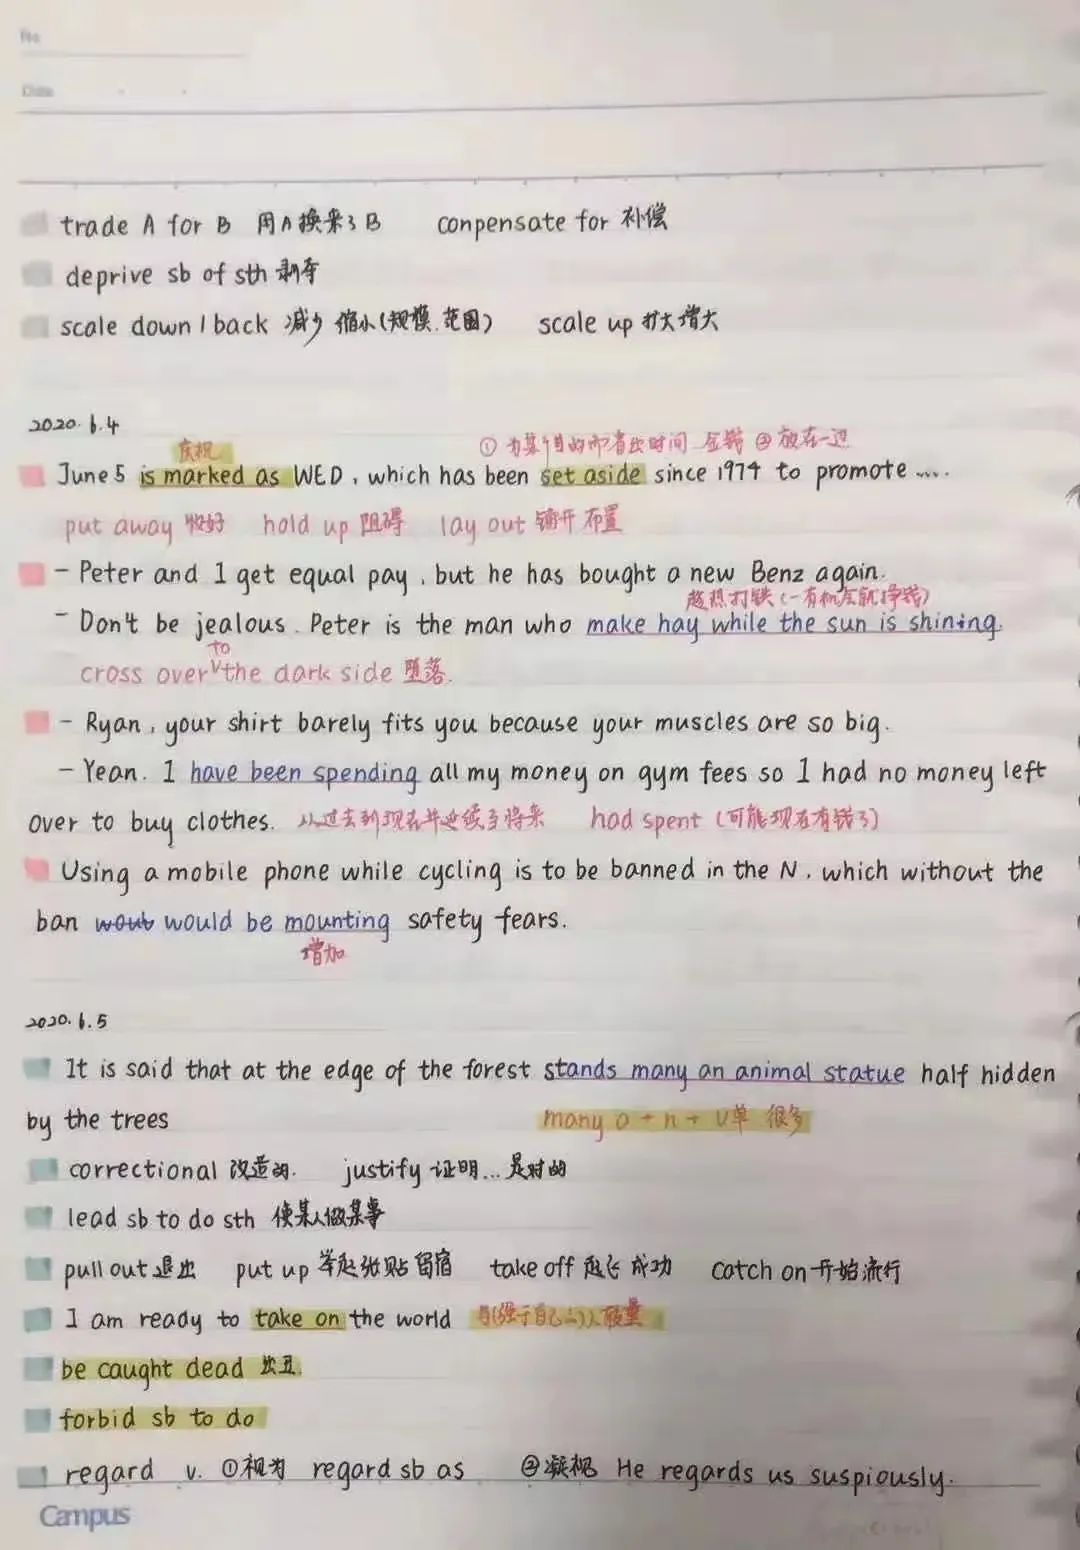 No
Date
trade A for B 用A换来了B conpensate for 补偿
deprive sb of sth 剥夺
scale down / back 减少 缩小(规模.范围) scale up 扩大增大
2020.6.4
庆祝 ① 为某个目的而省出时间 金钱 ② 放在一边
June 5 is marked as WED, which has been set aside since 1974 to promote .....
put away 收好 hold up 阻碍 lay out 铺开 布置
- Peter and I get equal pay, but he has bought a new Benz again.
趁热打铁(一有机会就挣钱)
- Don't be jealous. Peter is the man who make hay while the sun is shining.
to
cross over the dark side 堕落.
- Ryan, your shirt barely fits you because your muscles are so big.
- Yean. I have been spending all my money on gym fees so I had no money left
over to buy clothes. 从过去到现在并延续到将来 had spent (可能现在有钱了)
Using a mobile phone while cycling is to be banned in the N, which without the
ban would be mounting safety fears.
增加
2020.6.5
It is said that at the edge of the forest stands many an animal statue half hidden
by the trees many a + n + V单 很多
correctional 改造的. justify 证明...是对的
lead sb to do sth 使某人做某事
pull out 退出 put up 举起张贴留宿 take off 起飞 成功 catch on 开始流行
I am ready to take on the world 与(强于自己的)人较量
be caught dead 出丑.
forbid sb to do
regard v. ①视为 regard sb as ②凝视 He regards us suspiously.
Campus